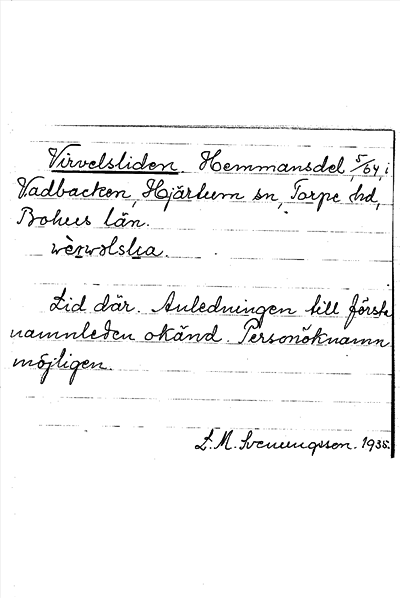 Virvelsliden. Hemmansdel 5/64 i
Vadbacken, Hjärtum sn, Torpe hd,
Bohus län.
wèrwəlslia.
Lid där. Anledningen till första
namnleden okänd. Personöknamn
möjligen.
L. M. Svenungsson. 1935.